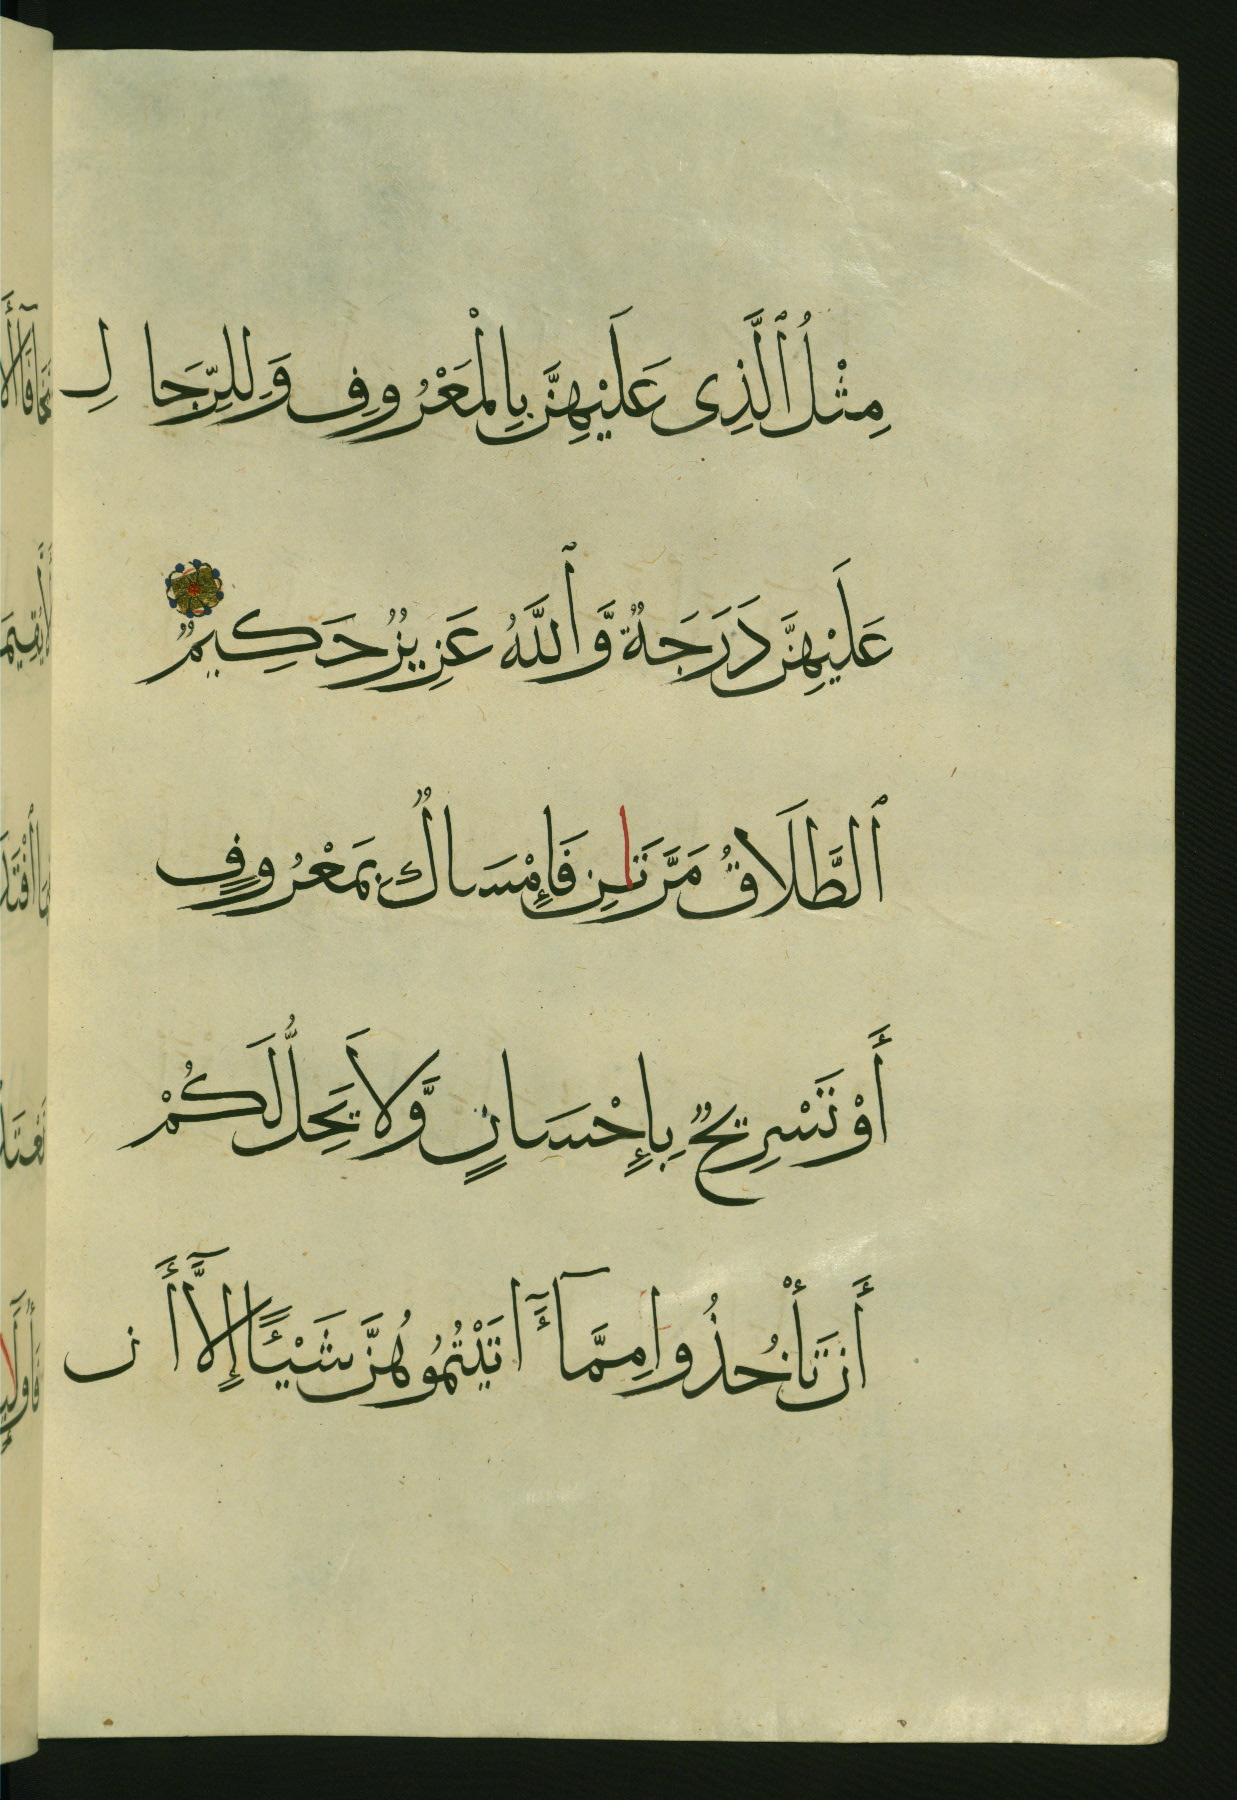 مِثْلُ ٱلَّذِى عَلَيْهِنَّ بِالْمَعْرُوفِ وَلِلرِّجَالِ
عَلَيْهِنَّ دَرَجَةٌ وَّٱللَّهُ عَزِيزٌ حَكِيمٌ
ٱلطَّلَاقُ مَرَّتَانِ فَإِمْسَاكٌ بِمَعْرُوفٍ
أَوْ تَسْرِيحٌ بِإِحْسَانٍ وَّلَا يَحِلُّ لَكُمْ
أَن تَأْخُذُوا مِمَّآ ءَاتَيْتُمُوهُنَّ شَيْئًا إِلَّآ أَن